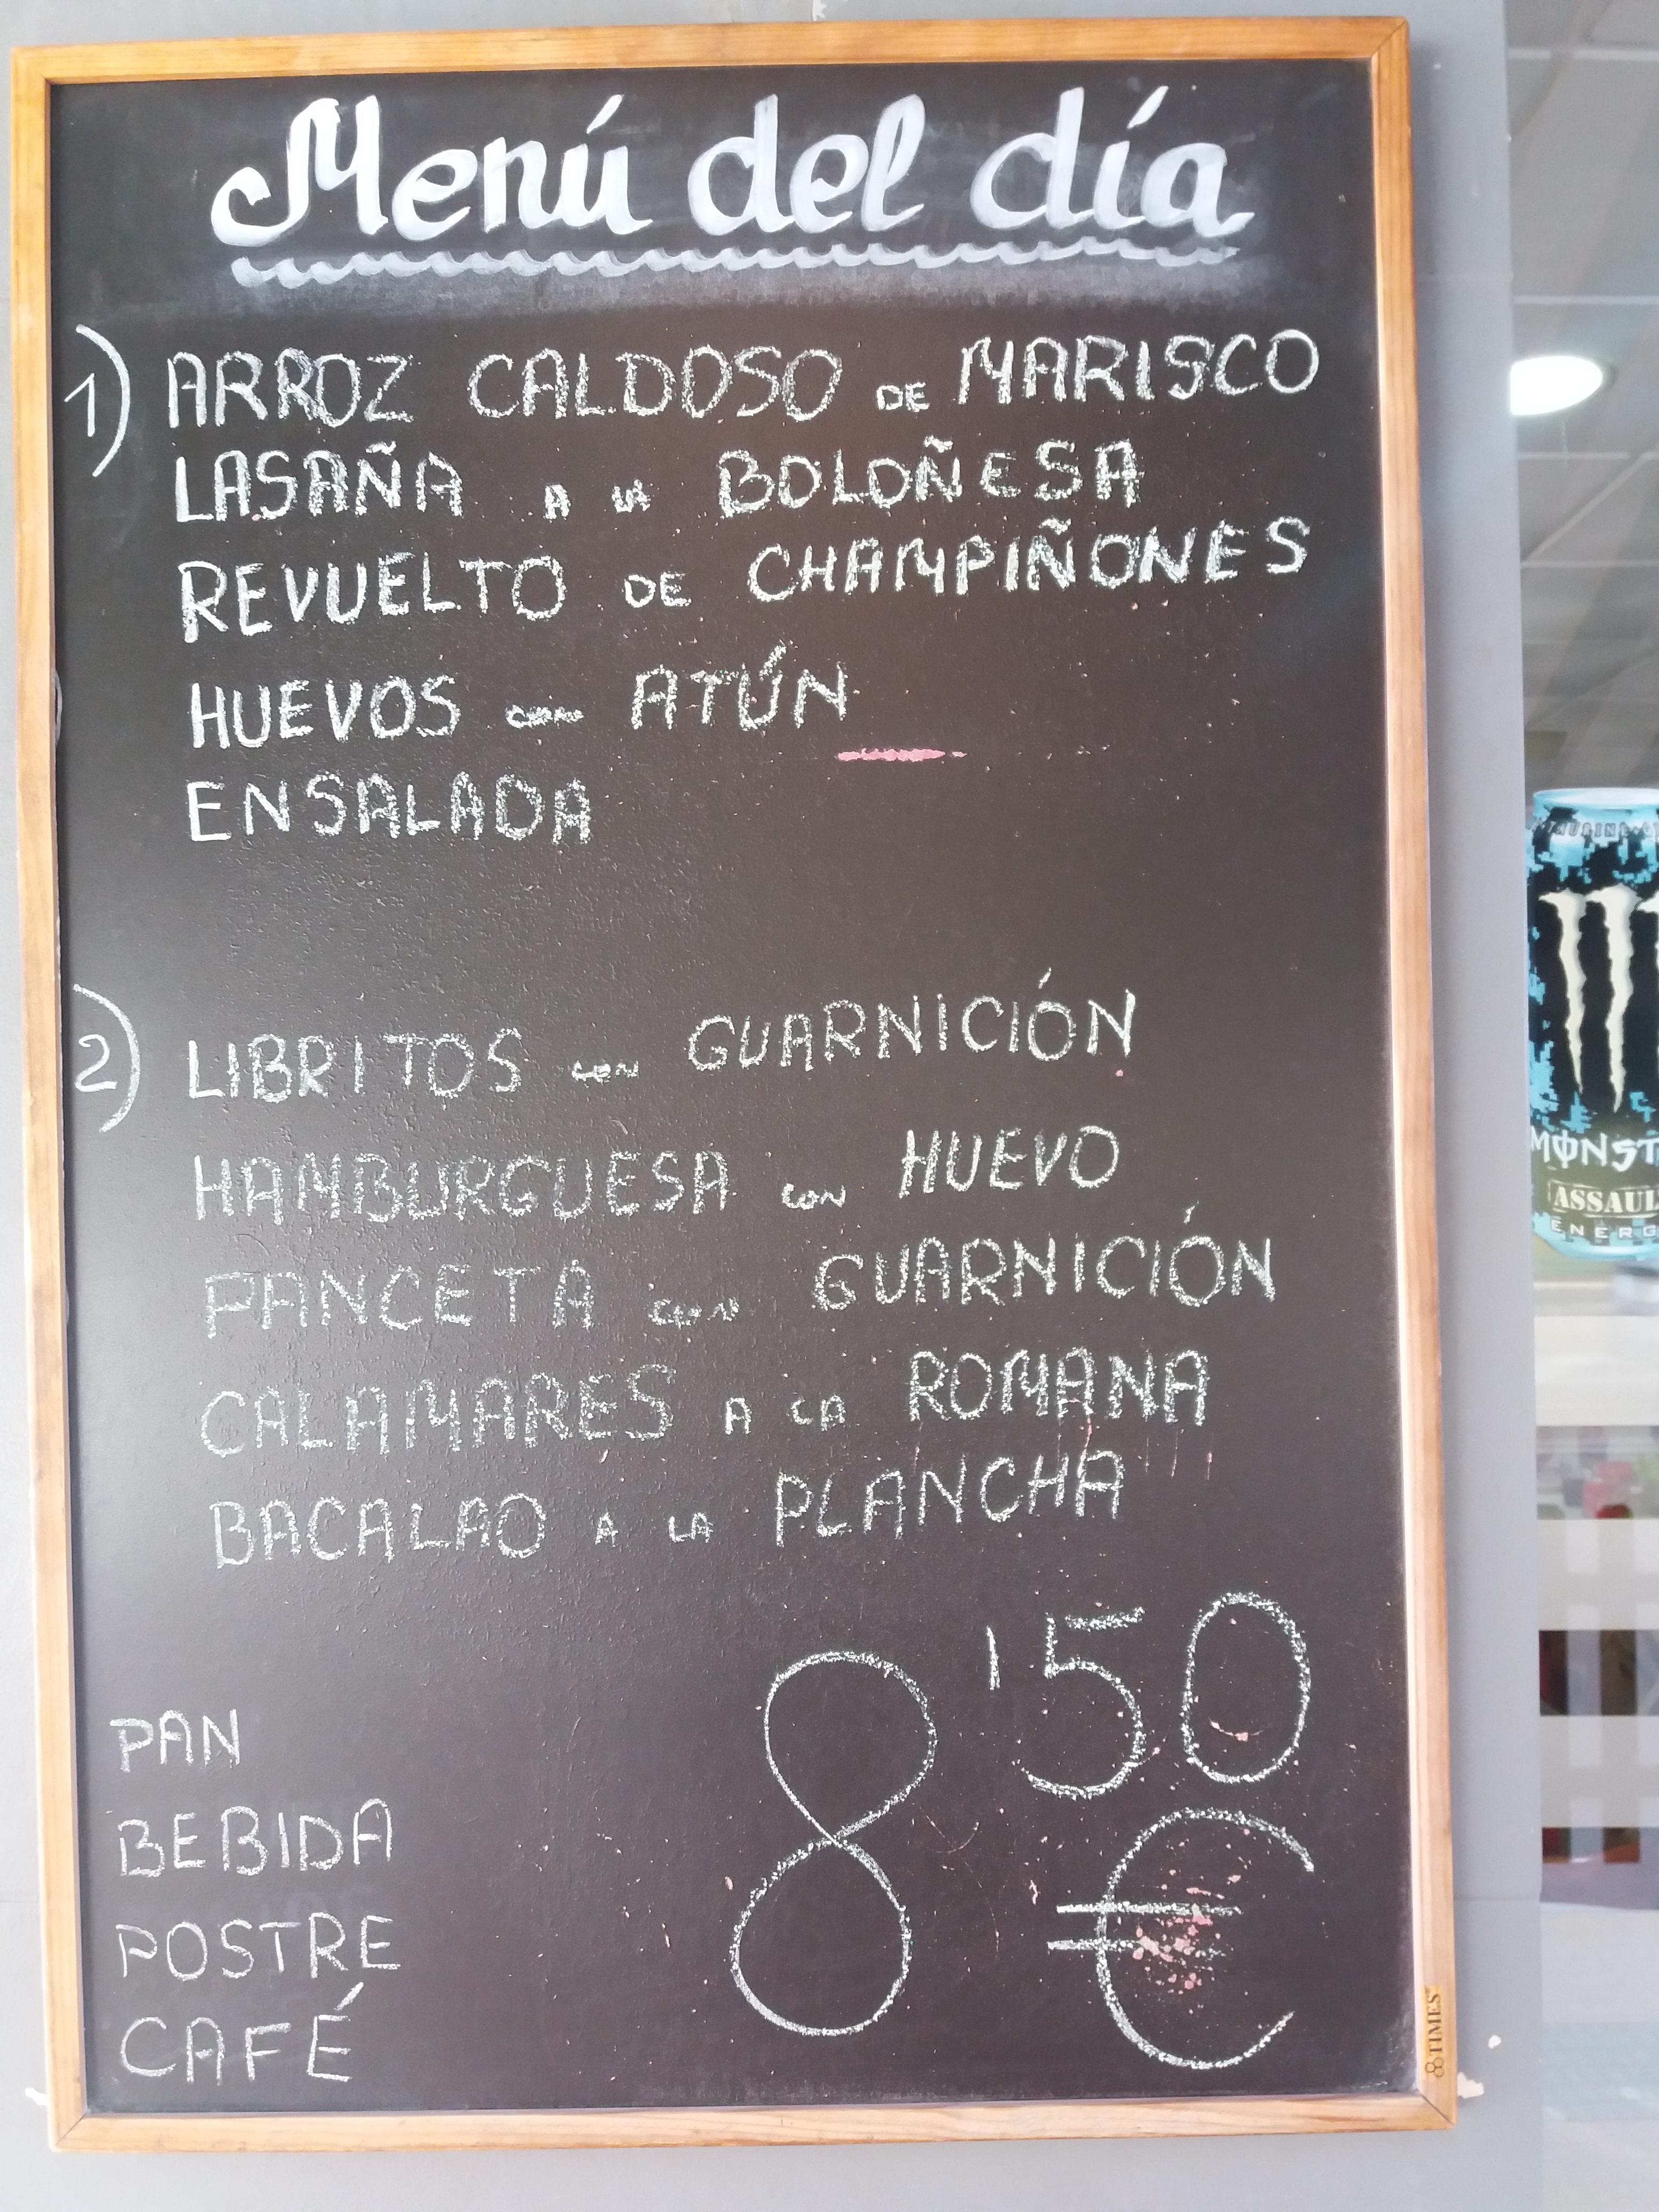 Menú del día
1) ARROZ CALDOSO DE MARISCO
LASAÑA A LA BOLOÑESA
REVUELTO DE CHAMPIÑONES
HUEVOS CON ATÚN
ENSALADA
2) LIBRITOS CON GUARNICIÓN
HAMBURGUESA CON HUEVO
PANCETA CON GUARNICIÓN
CALAMARES A LA ROMANA
BACALAO A LA PLANCHA
8'50
€
PAN
BEBIDA
POSTRE
CAFÉ
TIMES
MONST
ASSAUL
ENERG